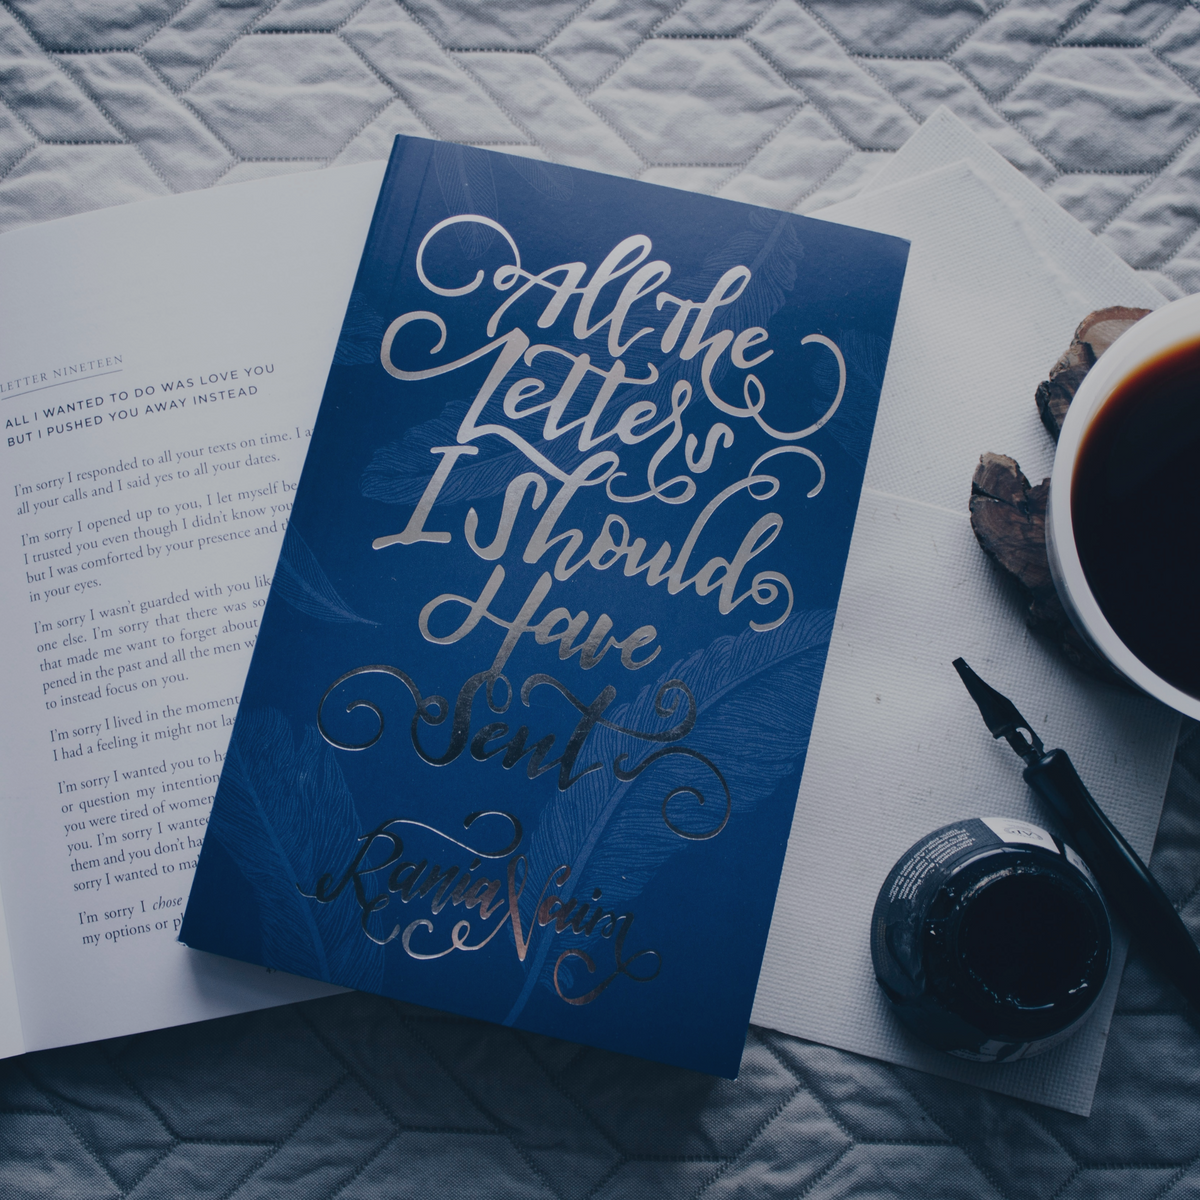 LETTER NINETEEN
ALL I WANTED TO DO WAS LOVE YOU
BUT I PUSHED YOU AWAY INSTEAD
I'm sorry I responded to all your texts on time. I
all your calls and I said yes to all your dates.
I'm sorry I opened up to you, I let myself be
I trusted you even though I didn't know you
but I was comforted by your presence and
in your eyes.
I'm sorry I wasn't guarded with you
one else. I'm sorry that there was so
that made me want to forget about
pened in the past and all the men
to instead focus on you.
I'm sorry I lived in the moment
I had a feeling it might not
I'm sorry I wanted you to
or question my intention
you were tired of women
you. I'm sorry I wanted
them and you don't
sorry I wanted to
I'm sorry I chose
my options or
All The
Letters
I Should
Have
Sent
Rania Naim